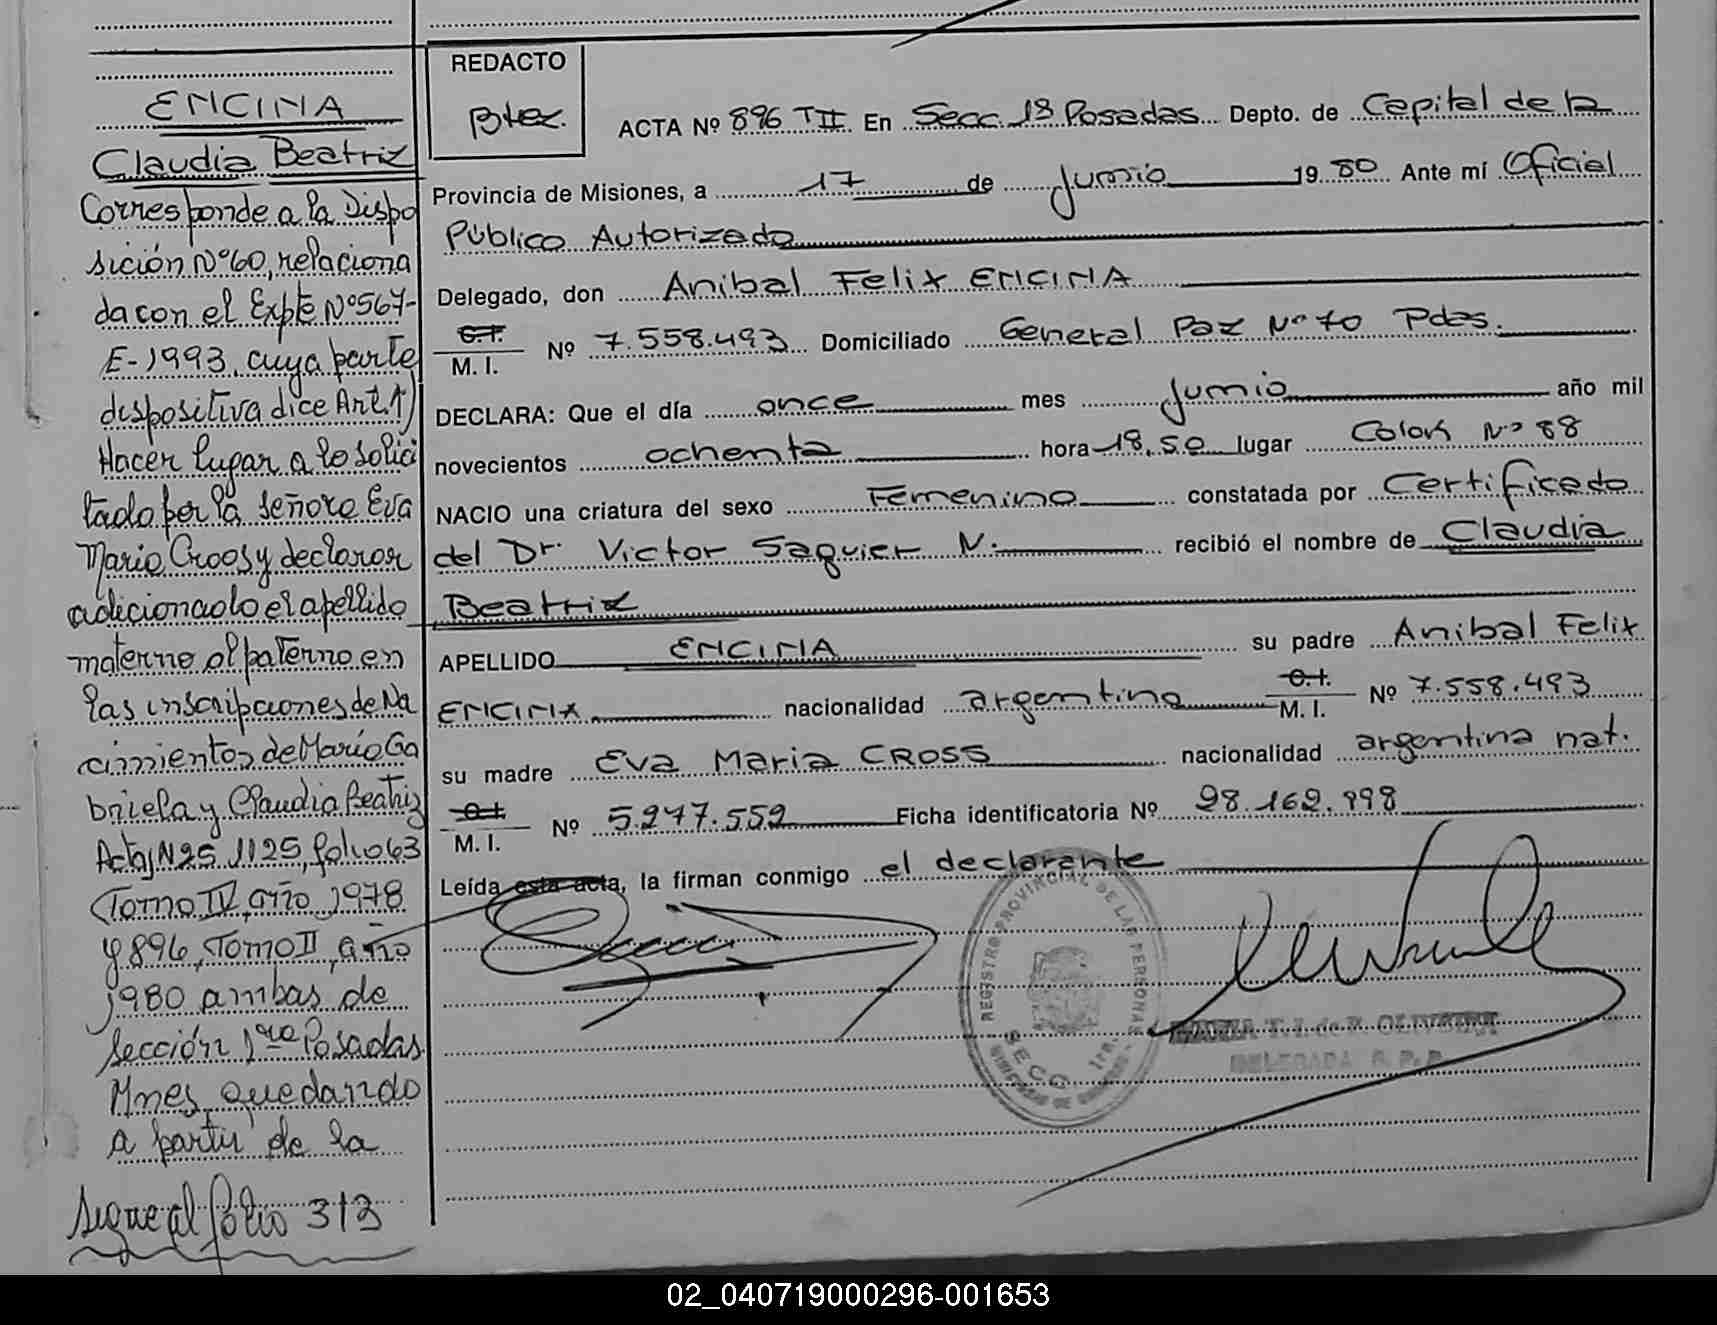 ENCINA
Claudia Beatriz
Corresponde a la Dispo
sición Nº60, relaciona
da con el Expte Nº567-
E-1993, cuya parte
dispositiva dice Art. 1)
Hacer lugar a lo solici
tado por la señora Eva
Maria Croos y declarar
adicionado el apellido
materno al paterno en
las inscripciones de Na
cimientos de María Ga
briela y Claudia Beatriz
Actas Nºs 1125, folio 63
Tomo IV, año 1978
y 896, Tomo II, año
1980 ambas de
Sección 1ra Posadas
Mnes, quedando
a partir de la
sigue al folio 313
REDACTO
ACTA Nº 896 TII En Secc. 1ª Posadas Depto. de Capital de la
Provincia de Misiones, a 17 de Junio 19 80 Ante mí Oficial
Público Autorizado
Delegado, don Anibal Felix ENCINA
M. I. Nº 7.558.493 Domiciliado General Paz Nº 70 Pdas.
DECLARA: Que el día once mes Junio año mil
novecientos ochenta hora 18,50 lugar Colon Nº 88
NACIO una criatura del sexo Femenino constatada por Certificado
del Dr. Victor Saguier N. recibió el nombre de Claudia
Beatriz
APELLIDO ENCINA su padre Anibal Felix
ENCINA nacionalidad argentina M. I. Nº 7.558.493
su madre Eva Maria CROSS nacionalidad argentina nat.
M. I. Nº 5.247.552 Ficha identificatoria Nº 28.162.998
Leída esta acta, la firman conmigo el declarante
REGISTRO PROVINCIAL DE LAS PERSONAS
SECC. 1ra.
DELEGADA R. P. P.
02_040719000296-001653